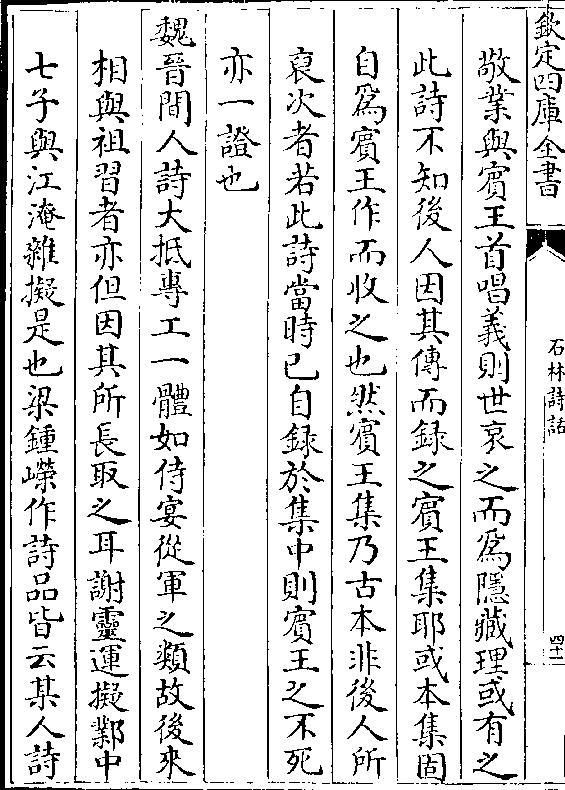 欽定四庫全書
石林詩話
四十一
敬業與賓王首唱義則世哀之而爲隱藏理或有之
此詩不知後人因其傳而録之賓王集耶或本集固
自爲賓王作而收之也然賓王集乃古本非後人所
裒次者若此詩當時已自録於集中則賓王之不死
亦一證也
魏晉間人詩大抵專工一體如侍宴從軍之類故後來
相與祖習者亦但因其所長取之耳謝靈運擬鄴中
七子與江淹雜擬是也梁鍾嶸作詩品皆云某人詩